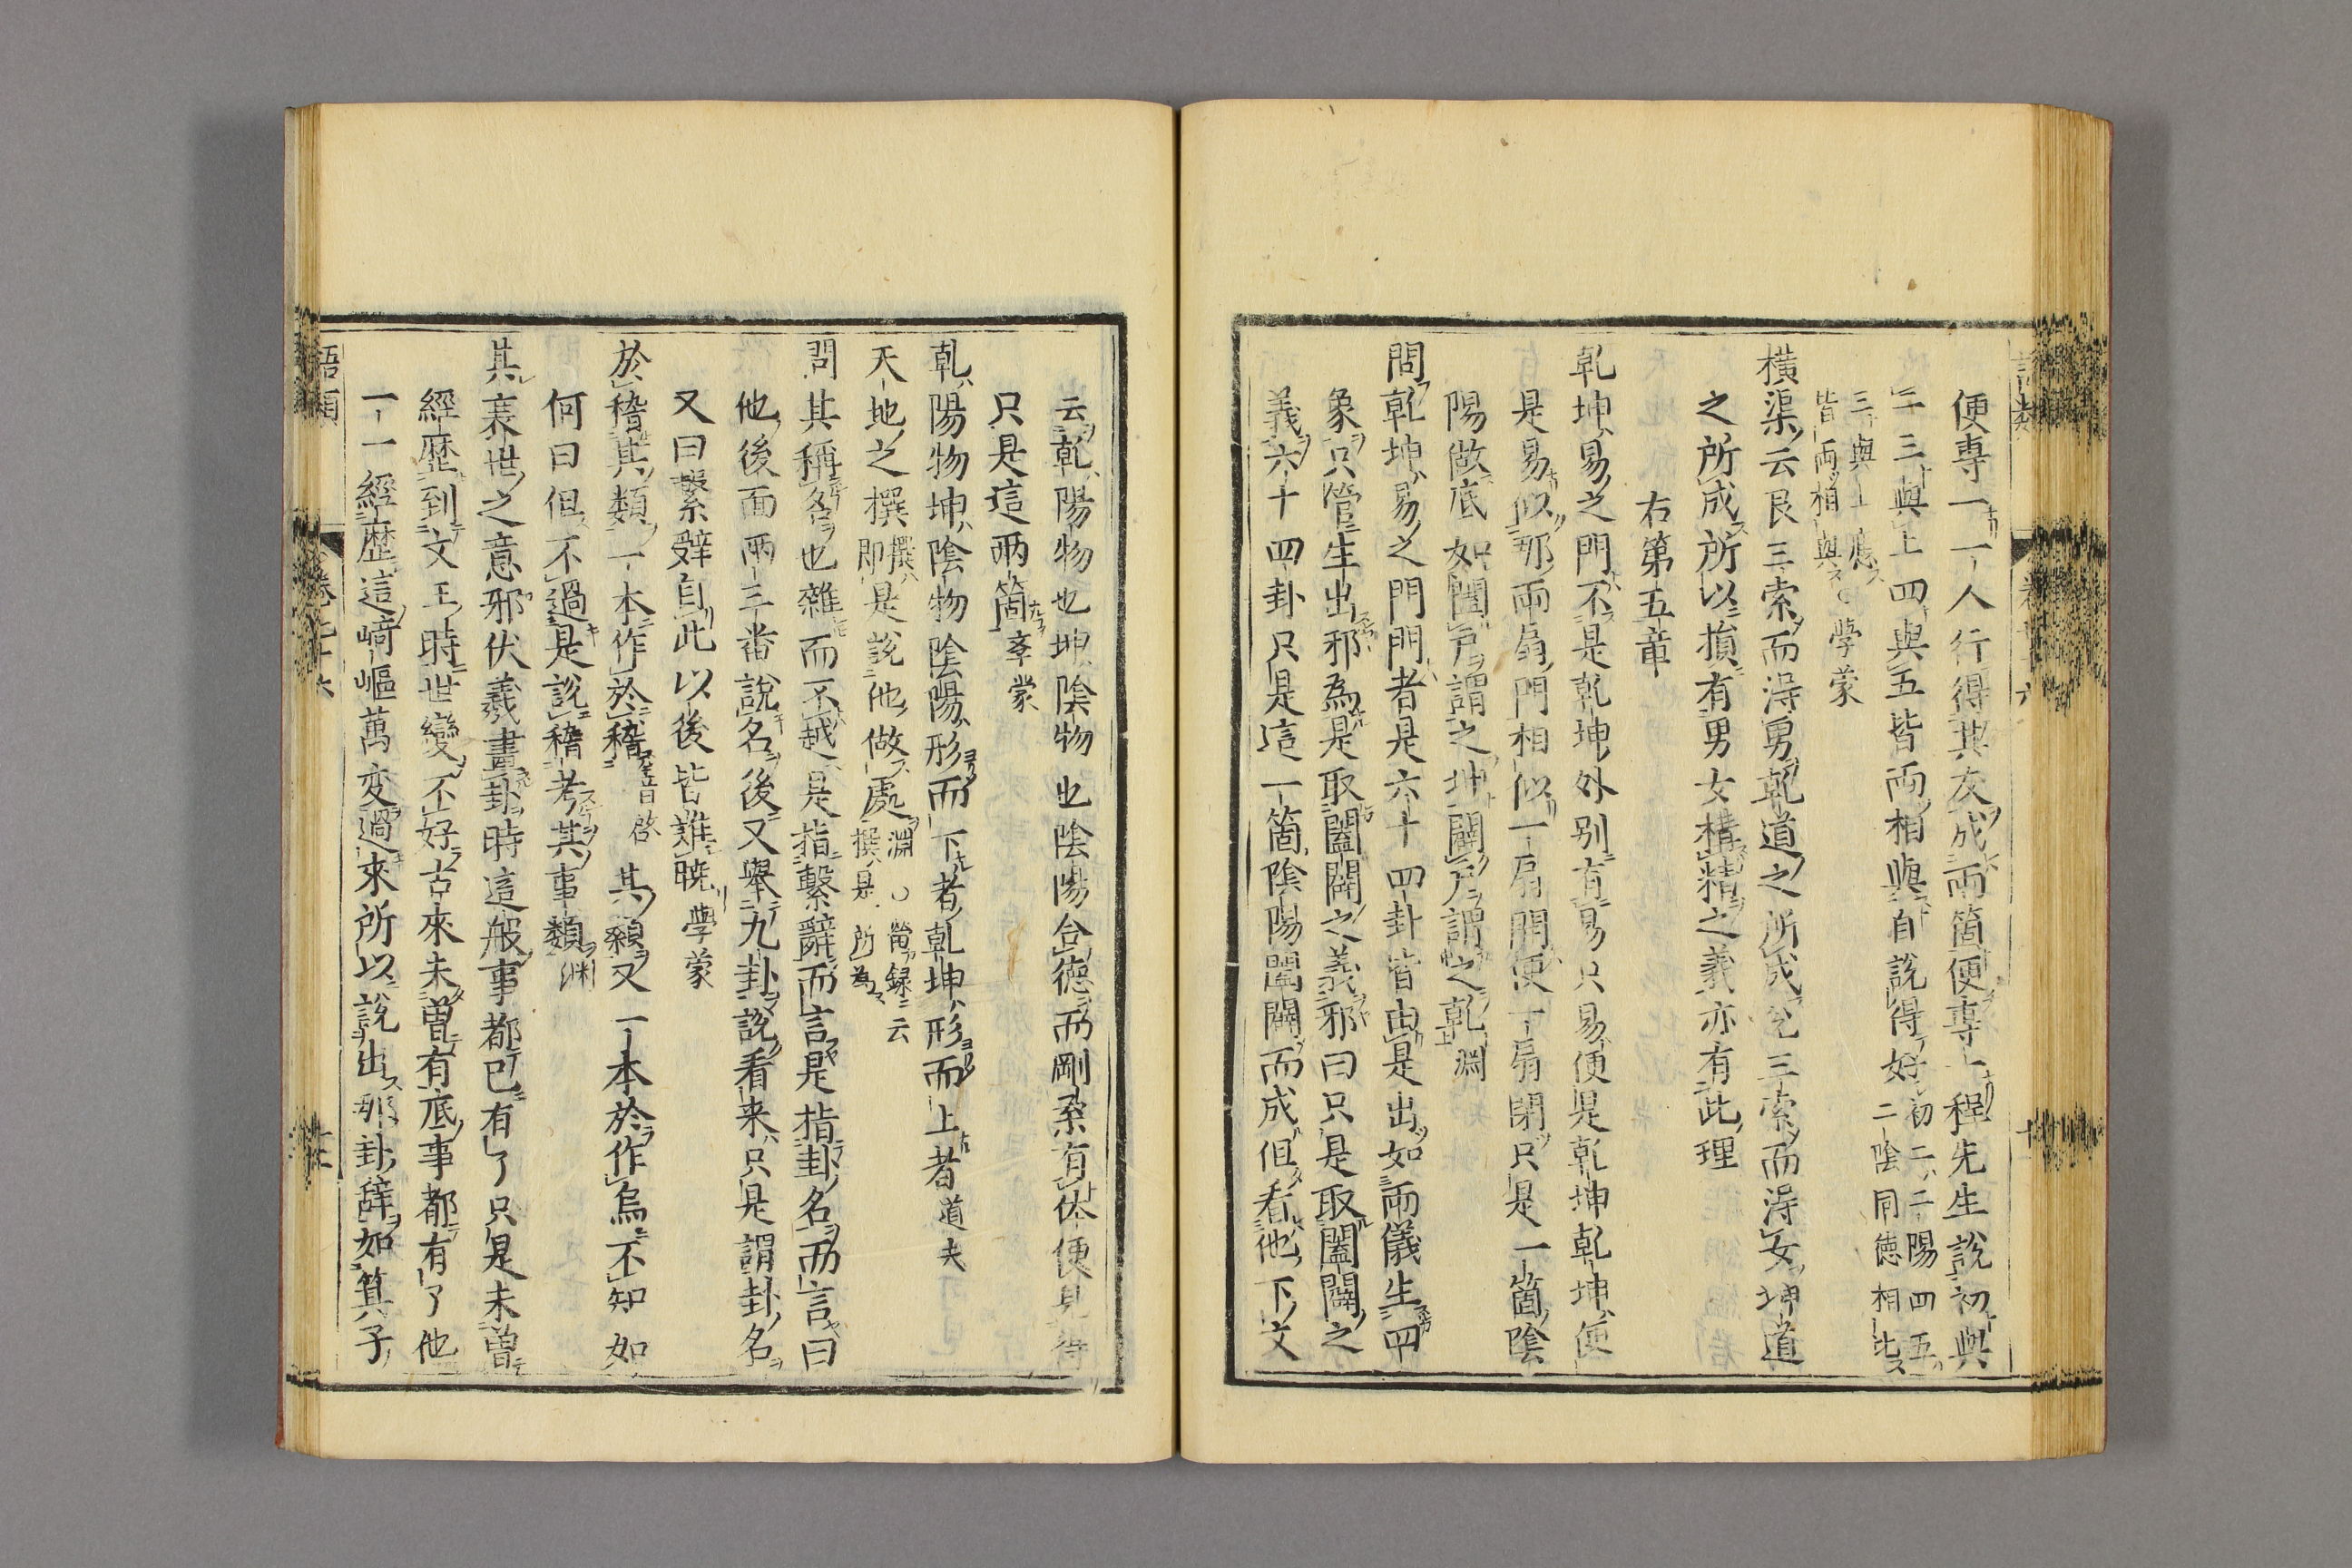 便專一一人行得其友成兩箇便專一程先生說初與
二三與上四與五皆兩相與自說得好初二二陽四五二陰同德相比
三與上應皆兩相與○學蒙
橫渠云艮三索而得男乾道之所成兌三索而得女坤道
之所成所以損有男女構精之義亦有此理
右第五章
乾坤易之門不是乾坤外別有易只易便是乾坤乾坤便
是易似那兩扇門相似一扇開便一扇閉只是一箇陰
陽做底如闔戶謂之坤闢戶謂之乾淵
問乾坤易之門門者是六十四卦皆由是出如兩儀生四
象只管生出邪為是取闔闢之義邪曰只是取闔闢之
義六十四卦只是這一箇陰陽闔闢而成但看他下文
云乾陽物也坤陰物也陰陽合德而剛柔有体便見得
只是這兩箇 學蒙
乾陽物坤陰物陰陽形而下者乾坤形而上者道夫
天地之撰撰即是說他做處淵○䕫錄云撰是所為
問其稱名也雜而不越是指繫辭而言是指卦名而言曰
他後面兩三番說名後又舉九卦說看来只是謂卦名
又曰繫辤自此以後皆難曉 學蒙
於稽其類一本作於稽音啓其顙又一本於作烏不知如
何曰但不過是說稽考其事類淵
其衰世之意邪伏羲畫卦時這般事都已有了只是未曽
經歴到文王時世變不好古來未曽有底事都有了他
一一經歴這崎嶇萬変過來所以說出那卦辭如箕子
語類
卷七十六